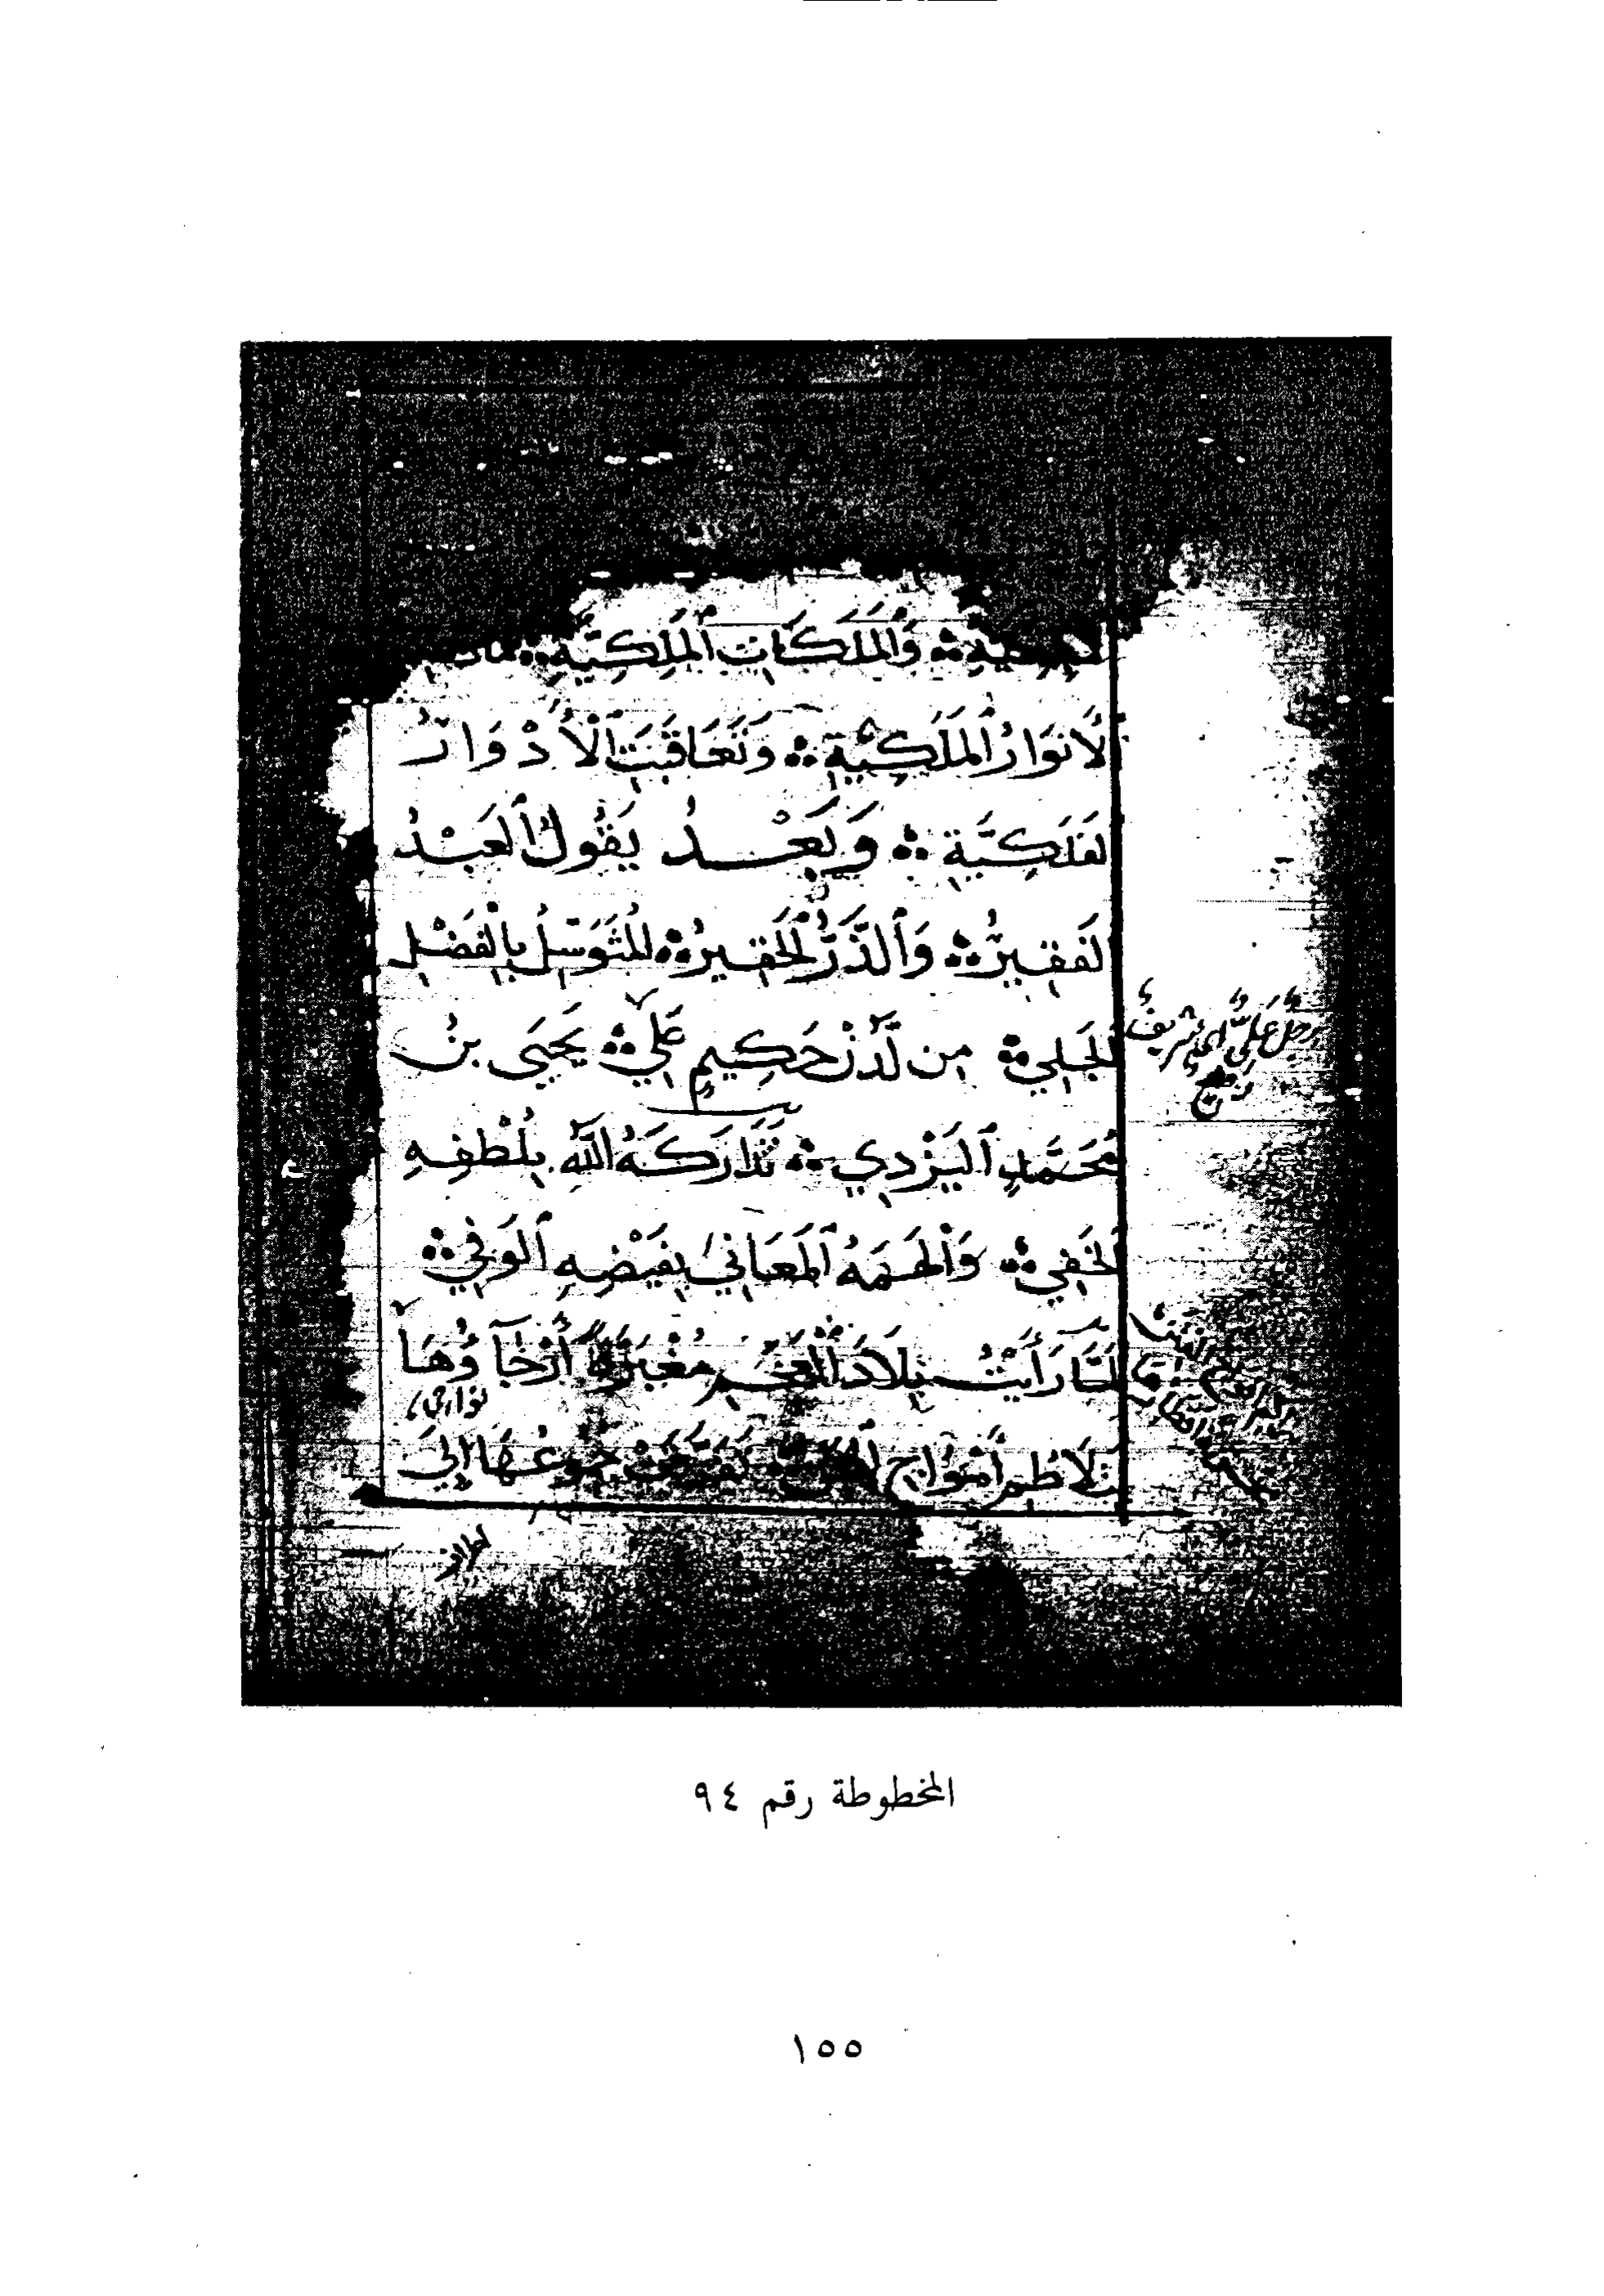 وَالْمَلَكَاتِ الْمَلَكِيَّةِ
الأَنوَارُ المَلَكِيَّةِ ؞ وَتَعَاقَبَتِ الْأَدْوَارُ
لفَلَكِيَّةِ ؞ وَبَعْدُ يَقُولُ العَبْدُ
لفَقِيرُ ؞ وَالذَّرُّ الحَقِيرُ ؞ المُتَوَسِّلُ بِالْفَضْلِ
الجَلِي ؞ مِن لَّدُنْ حَكِيمٍ عَلِي ؞ يَحْيَى بنُ
مُحَمَّدٍ اليَزْدِي ؞ تَدَارَكَهُ اللهُ بِلُطْفِهِ
الخَفِي ؞ وَأَلْهَمَهُ المَعَانِي بِفَيْضِهِ الوَفِي ؞
لَمَّا رَأَيْتُ بِلَادَ العَجَمِ مُغْبَرَّةً أَرْجَآؤُهَا
نواحى
بِتَلَاطُمِ أَمْوَاجِ جُمُوعُهَا إِلَى
رجل علىّ اى شريف
رفيع
المخطوطة رقم ٩٤
١٥٥